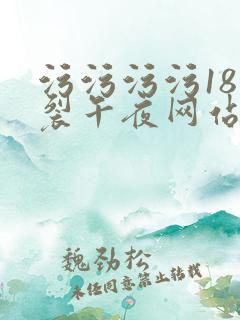 污污污污18
裂午夜网站
魏劲松
未经同意禁止转载